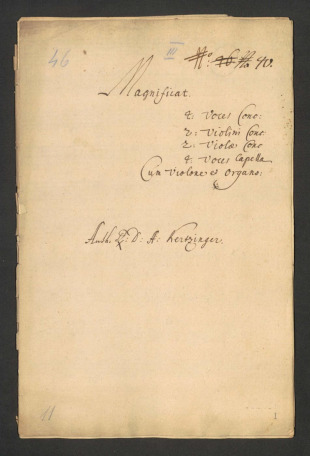 46
III
No: 16 No 40.
Magnificat.
4: Voces Conc:
2: Violini Conc
2: Violæ Conc
4: Voces Capella
Cum Violone et Organo:
Auth: R: D: A: Kertzinger.
11
1